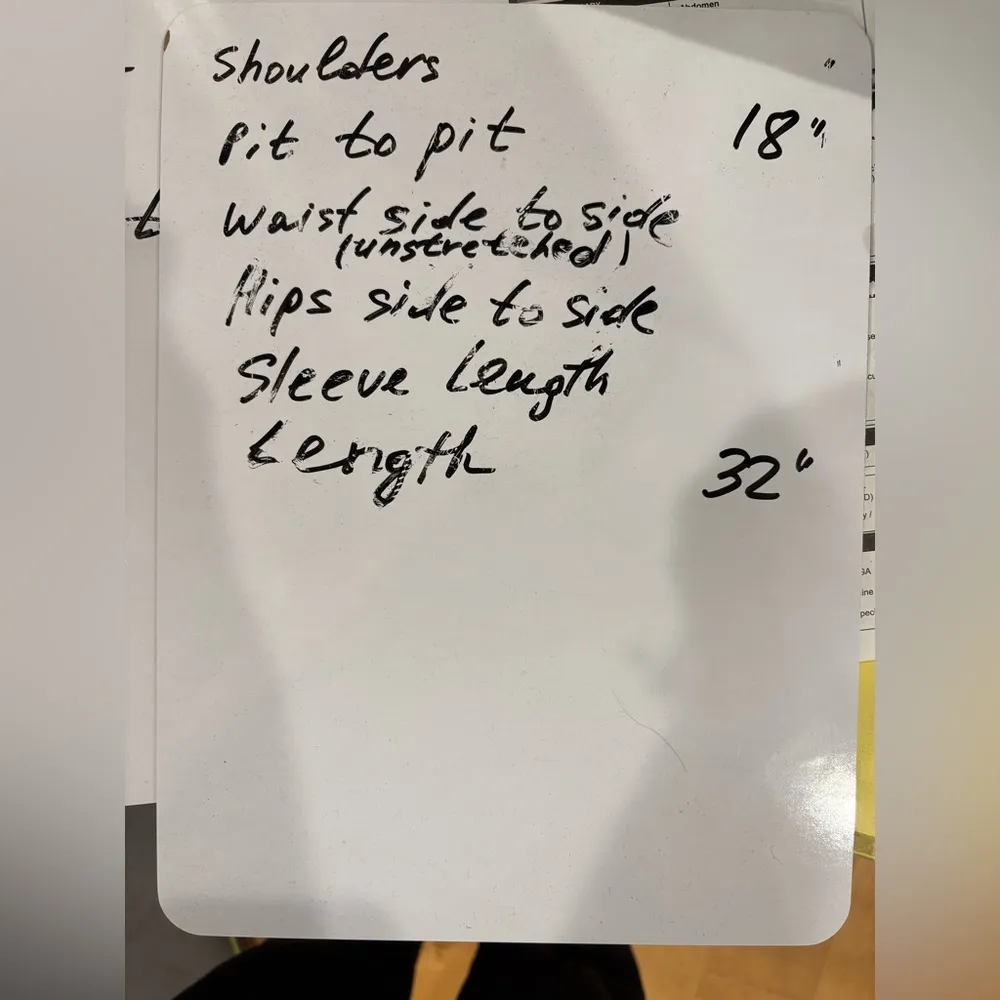 Abdomen
Shoulders "
Pit to pit 18"
Waist side to side
(unstretched)
Hips side to side
Sleeve Length "
Length 32"